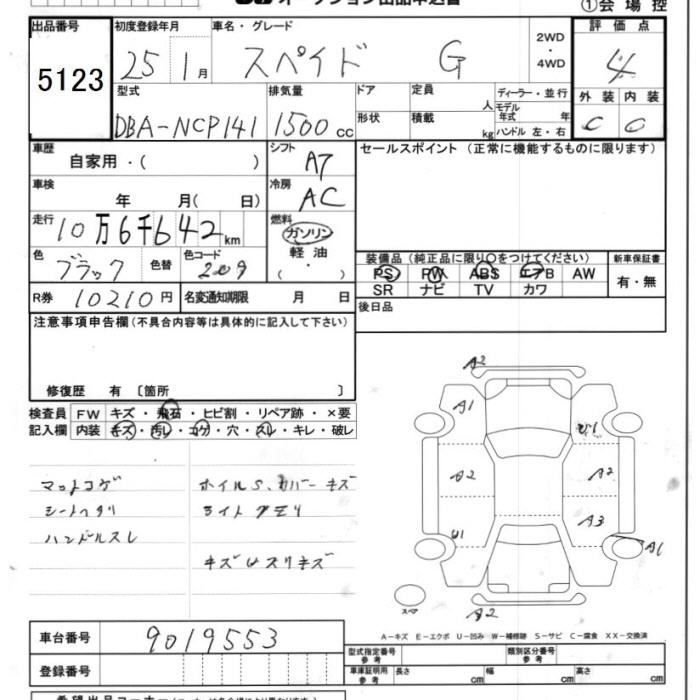 ①会場控
出品番号
5123
初度登録年月
25 1月
車名・グレード
スペイド G
2WD
・
4WD
評価点
4
外装 内装
C C
型式
DBA-NCP141
排気量
1500 cc
ドア
形状
定員
人
積載
kg
ディーラー・並行
モデル
年式 年
ハンドル 左・右
車歴
自家用・( )
シフト
A7
セールスポイント (正常に機能するものに限ります)
車検
年 月( 日)
冷房
AC
走行
10万6千642km
燃料
ガソリン
軽油
・
( )
色
ブラック
色替
色コード
209
R券 10210円
名変通知期限 月 日
装備品(純正品に限り○をつけてください)
PS PW ABS エアB AW
SR ナビ TV カワ
新車保証書
有・無
後日品
注意事項申告欄(不具合内容等は具体的に記入して下さい)
修復歴 有 〔箇所 〕
検査員
記入欄
FW キズ・飛石・ヒビ割・リペア跡・×要
内装 キズ・汚レ・コゲ・穴・スレ・キレ・破レ
マットコゲ
シートヘタリ
ハンドルスレ
ホイルS、カバーキズ
ライトクモリ
キズUスリキズ
A2
A1
U1
A2
A2
U1
A3
A1
スペア
A2
A−キズ E−エクボ U−凹み W−補修跡 S−サビ C−腐食 XX−交換済
車台番号
9019553
登録番号
型式指定番号
参考
類別区分番号
参考
車庫証明用
参考
長さ cm
幅 cm
高さ cm